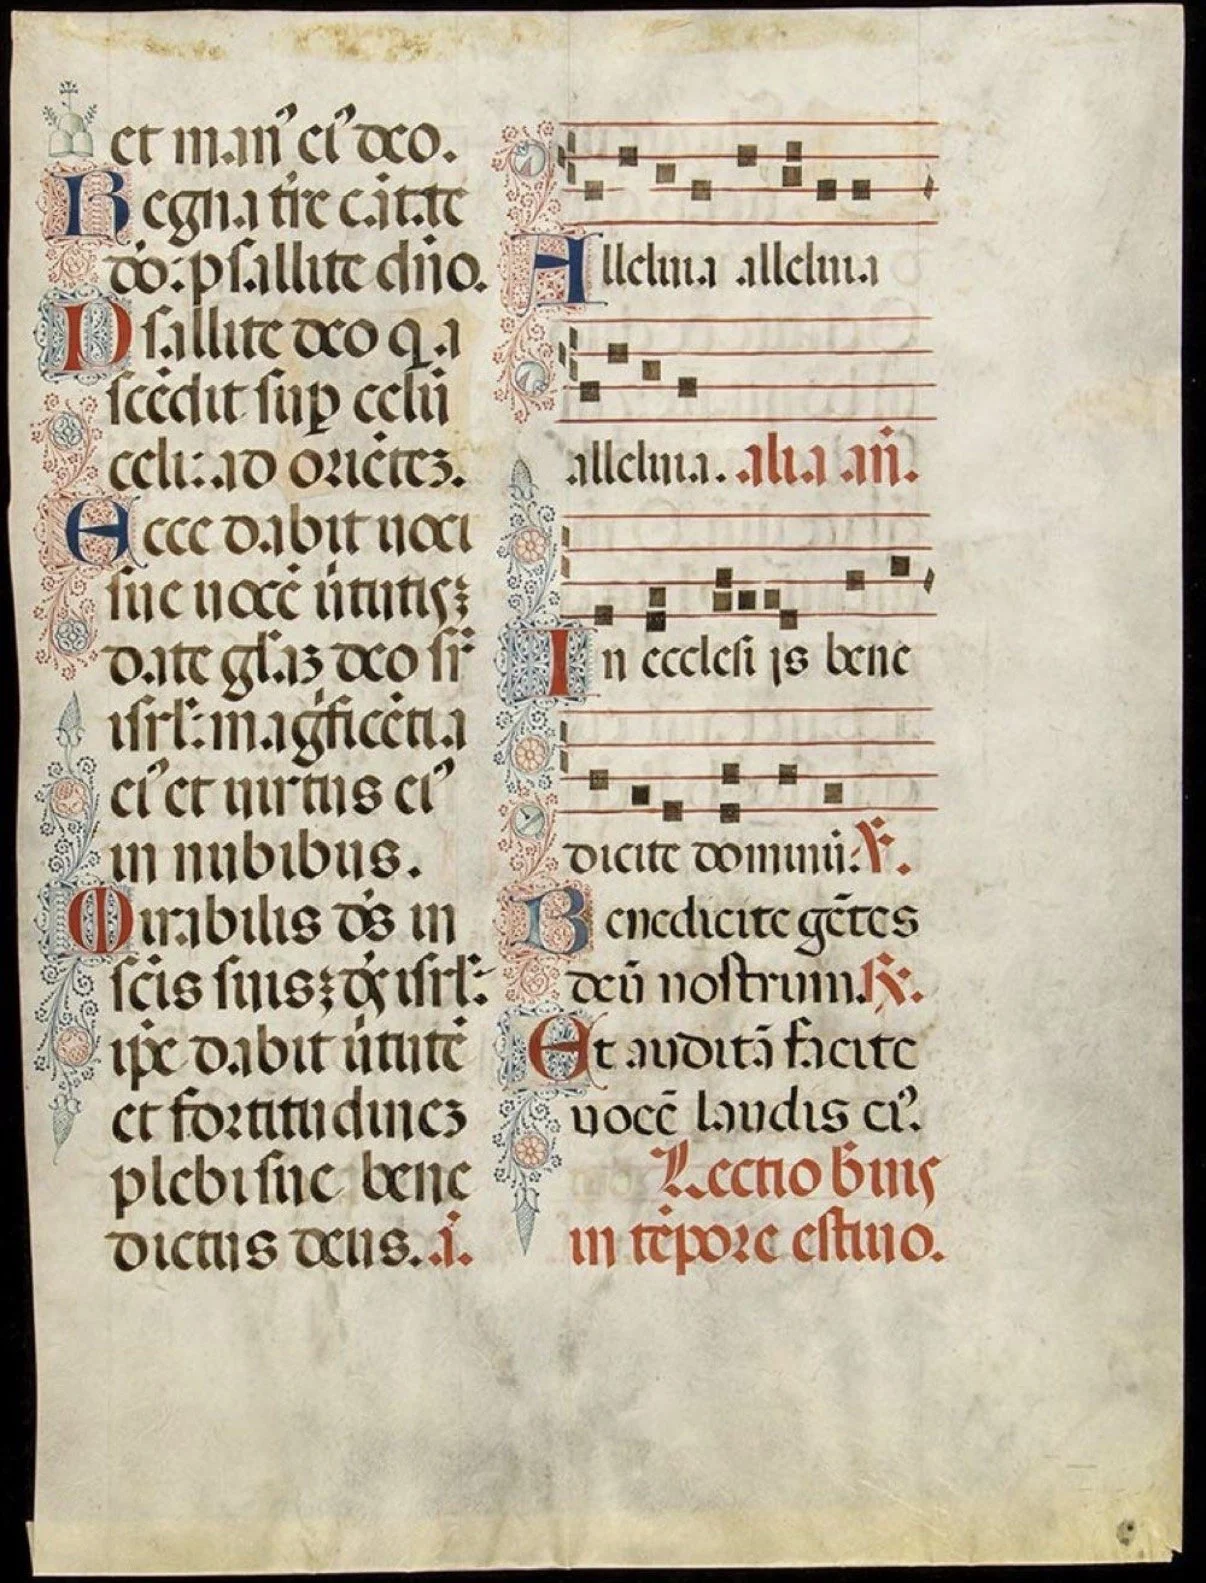 et man⁹ ei⁹ deo.
Regna tr̄e cātate
dō: psallite dn̄o.
Psallite deo q a
scēdit sup celū
celi: ad oriētez.
Ecce dabit uoci
sue uocē ūtutis;
date gl̄az deo sr̄
isrl̄: magfīcētia
ei⁹ et uirtus ei⁹
in nubibus.
Mirabilis ds̄ in
scīs suis; ds̄ isrl̄:
ip̄e dabit ūtutē
et fortitudinez
plebi sue bene
dictus deus. .i.
Alleluia alleluia
alleluia. alia an̄.
In ecclesi is bene
dicite dominū: V.
Benedicite gētes
deū nostrum. R.
Et auditā facite
uocē laudis ei⁹.
Lectio bͥuis
in tēpore estiuo.